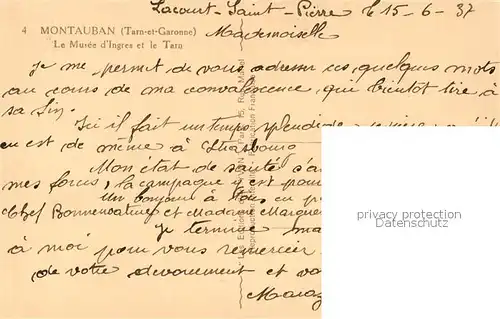 Lacourt-Saint-Pierre le 15-6-37
4 MONTAUBAN (Tarn-et-Garonne)
Le Musée d'Ingres et le Tarn
Mademoiselle
Je me permet de vous adresser ces quelques mots
au cours de ma convalescence, qui bientot tire à
sa fin.
Ici il fait un temps splendide
en est de même à Strasbourg
Mon état de santé s'a
mes forces, la campagne y est pour
Un bonjour à tous en p
Chef Bonnenoature et Madame Maigue
Je termine ma
à moi pour vous remercier
de votre devouement et vo
privacy protection
privacy protection